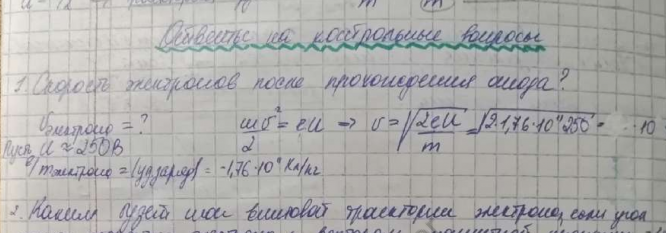 Ответы на контрольные вопросы
1. Скорость электронов после прохождения анода?
υэлектрона = ? mυ²/2 = eU => υ = √(2eU/m) = √(2·1,76·10¹¹·250 = ·10
Пусть U ≈ 250В
e/m электрона = (уд заряд) = -1,76·10¹¹ Кл/кг
2. Каким будет шаг винтовой траектории электрона, если угол